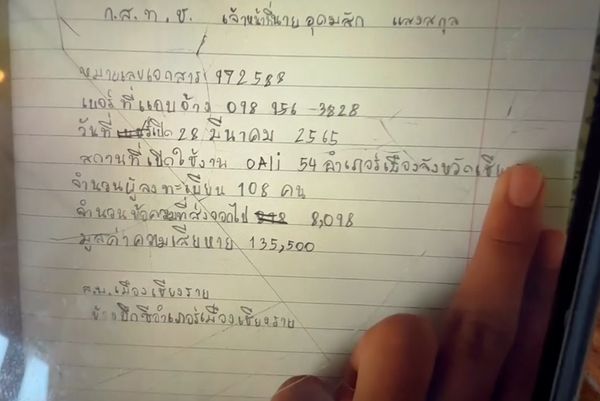 ก.ส.ท.ช. เจ้าหน้าที่นาย อุดมสัก แสงสกุล
หมายเลขเอกสาร 972588
เบอร์ที่แอบอ้าง 098 956-3828
วันที่ เปิด 28 มีนาคม 2565
สถานที่เปิดใช้งาน 54 อำเภอร์เมืองจังหวัด
จำนวนผู้ลงทะเบียน 108 คน
จำนวนข้อความที่ส่งออกไป 8,098
มูลค่าความเสียหาย 135,500
ส.น. เมืองเชียงราย
อำเภอร์เมืองเชียงราย